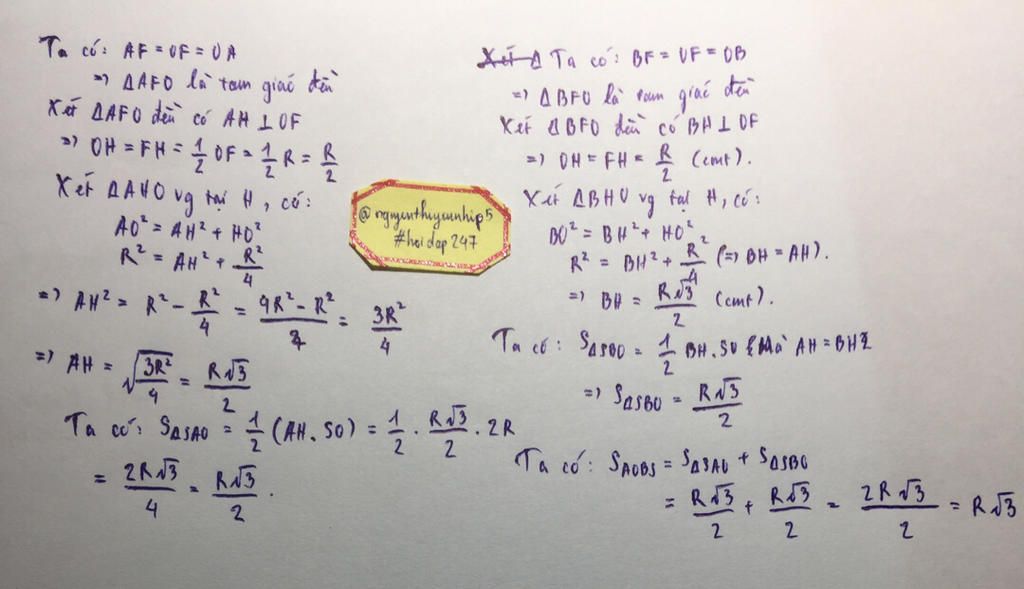 Ta có: AF = OF = OA
=> ΔAFO là tam giác đều
Xét ΔAFO đều có AH ⊥ OF
=> OH = FH = 1/2 OF = 1/2 R = R/2
Xét ΔAHO vg tại H, có:
AO² = AH² + HO²
R² = AH² + R²/4
=> AH² = R² - R²/4 = (4R² - R²)/4 = 3R²/4
=> AH = √(3R²/4) = R√3/2
Ta có: SΔSAO = 1/2 (AH. SO) = 1/2 . R√3/2 . 2R
= 2R√3/4 = R√3/2 .
@nguyenthuyanhip5
#hoidap247
Xét Δ Ta có: BF = OF = OB
=> ΔBFO là tam giác đều
Xét ΔBFO đều có BH ⊥ OF
=> OH = FH = R/2 (cmt).
Xét ΔBHO vg tại H, có:
BO² = BH² + HO²
R² = BH² + R²/4 (=> BH = AH).
=> BH = R√3/2 (cmt).
Ta có: SΔSBO = 1/2 BH. SO { Mà AH = BH }
=> SΔSBO = R√3/2
Ta có: SAOBS = SΔSAO + SΔSBO
= R√3/2 + R√3/2 = 2R√3/2 = R√3